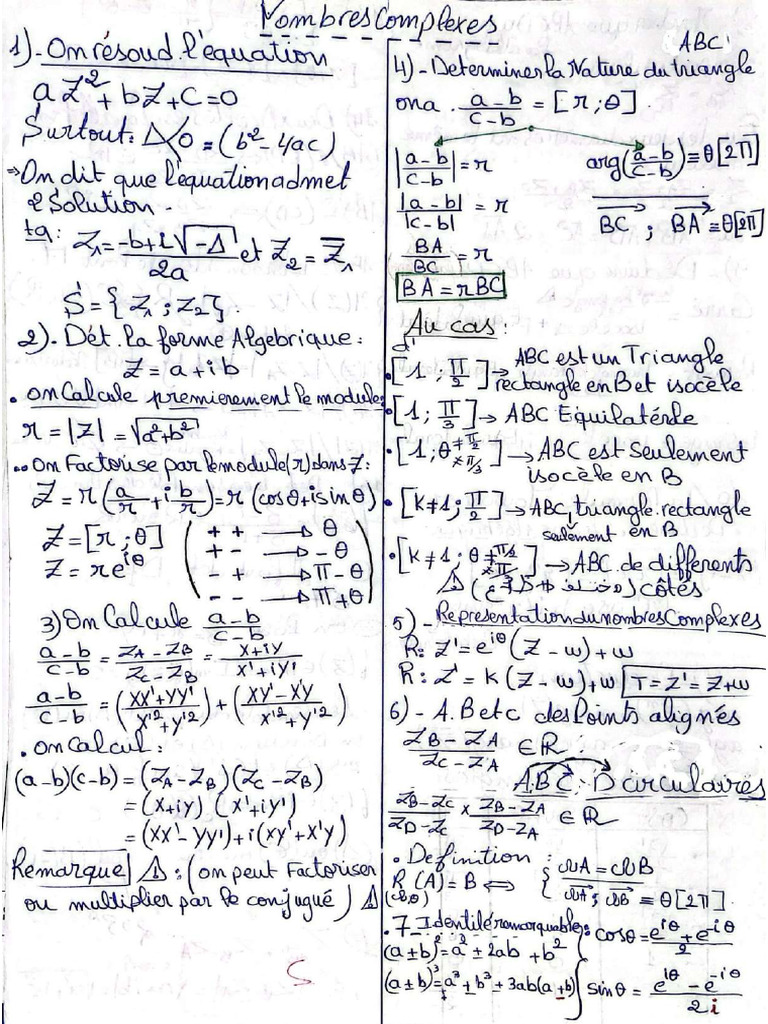 Nombres Complexes
1)-On résoud l'équation
aZ²+bZ+C=0
Surtout: Δ<0 = (b²-4ac)
⇒On dit que l'équation admet
2 Solution-
tq: Z₁=\frac{-b+i\sqrt{-Δ}}{2a} et Z₂=\overline{Z}₁
S={Z₁;Z₂}.
2)-Dét. la forme Algebrique:
Z=a+ib
. on Calcule premierement le module:
r=|Z|=\sqrt{a²+b²}
.. on Factorise par le module(r) dans Z:
Z=r(\frac{a}{r}+i\frac{b}{r})=r(cosθ+isinθ)
Z=[r;θ]
Z=re^{iθ}
(+ + → θ
+ - → -θ
- + → Π-θ
- - → Π+θ)
3) On Calcule \frac{a-b}{c-b}
\frac{a-b}{c-b}=\frac{Z_A-Z_B}{Z_C-Z_B}=\frac{x+iy}{x'+iy'}
\frac{a-b}{c-b}=(\frac{xx'+yy'}{y'²+y'²})+(\frac{xy'-xy}{x'²+y'²})
. on Calcul:
(a-b)(c-b)=(Z_A-Z_B)(Z_C-Z_B)
=(x+iy)(x'+iy')
=(xx'-yy')+i(xy'+x'y)
Remarque ⚠: (on peut Factoriser
ou multiplier par le conjugué) ⚠
ABC:
4)-Determiner la Nature du triangle
on a. \frac{a-b}{c-b}=[r;θ].
|\frac{a-b}{c-b}|=r arg(\frac{a-b}{c-b})≡θ[2Π]
\frac{|a-b|}{|c-b|}=r \overrightarrow{BC}; \overrightarrow{BA}≡θ[2Π]
\frac{BA}{BC}=r
BA=rBC
Au cas:
d'
.[1;\frac{Π}{2}]→ ABC est un Triangle
rectangle en B et isocèle
.[1;\frac{Π}{3}]→ ABC Equilatérde
.[1;θ≠\frac{Π}{2} ≠Π/3]→ABC est Seulement
isocèle en B
.[K≠1;\frac{Π}{2}]→ABC, triangle.rectangle
seulement en B
.[K≠1;θ≠Π/2 ≠Π/3]→ABC.de differents
côtés
5)-Representation du nombres Complexes
R: Z'=e^{iθ}(Z-w)+w
R: Z'=K(Z-w)+w T=Z'=Z+w
6)-A.B et c des Points alignés
\frac{Z_B-Z_A}{Z_C-Z_A} ∈ℝ
A.B.C.D circulaires
\frac{Z_B-Z_C}{Z_D-Z_C}×\frac{Z_B-Z_A}{Z_D-Z_A} ∈ℝ
. Definition:
R(A)=B ⇔ {ΩA=ΩB
(Ω,θ) \overrightarrow{ΩA};\overrightarrow{ΩB}≡θ[2Π]
.7_Identité remarquable:
(a±b)²=a²±2ab+b²
(a±b)³=a³±b³+3ab(a±b)
cosθ=\frac{e^{iθ}+e^{-iθ}}{2}
sinθ=\frac{e^{iθ}-e^{-iθ}}{2i}